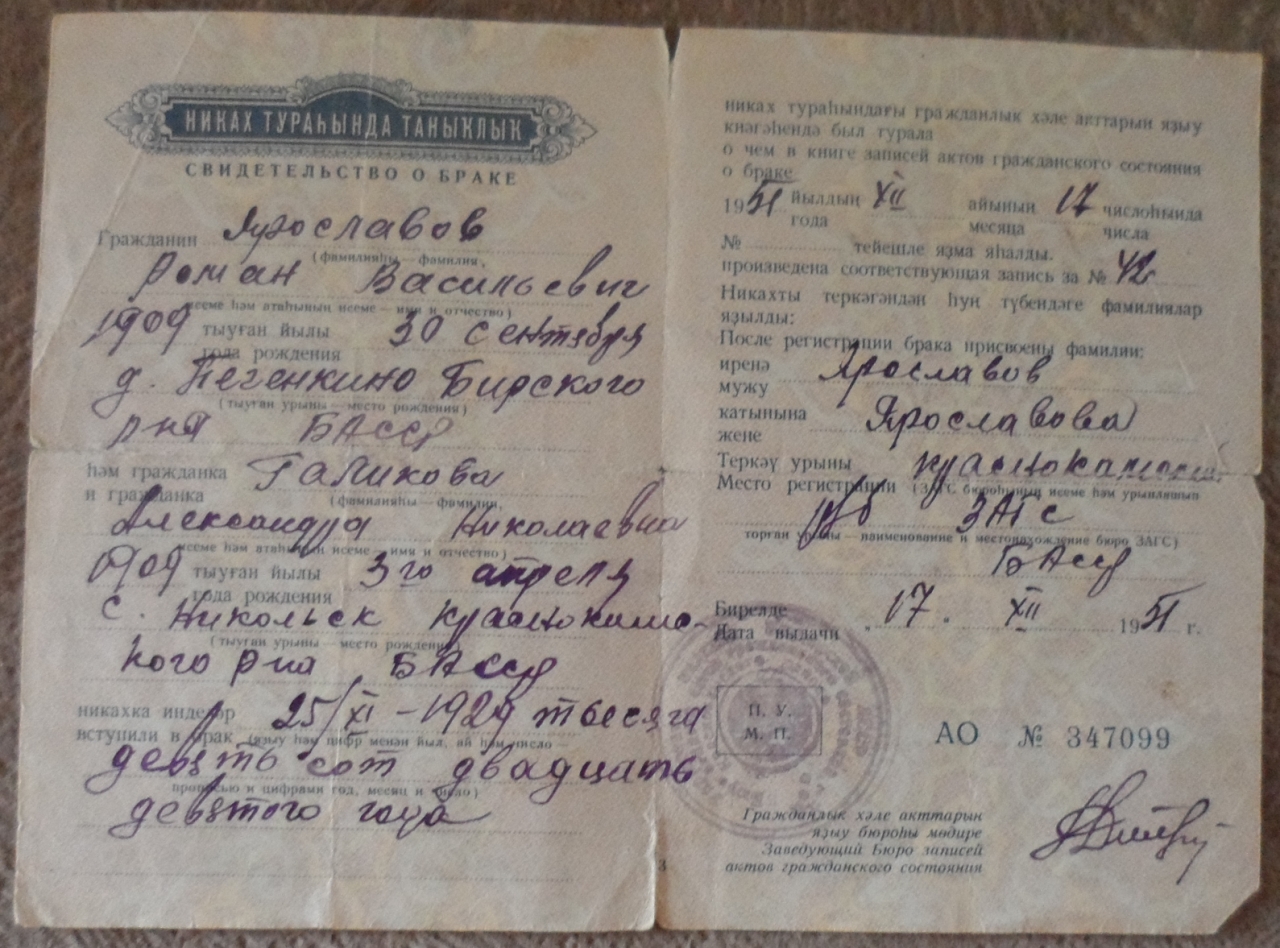 НИКАХ ТУРАҺЫНДА ТАНЫҠЛЫҠ
СВИДЕТЕЛЬСТВО О БРАКЕ
Гражданин Ярославов
(фамилияһы — фамилия,
Роман Васильевич
исеме һәм атаһының исеме — имя и отчество)
1909 тыуған йылы 30 сентября
года рождения
д. Печенкино Бирского
(тыуған урыны — место рождения)
р-на БАССР
һәм гражданка Галикова
и гражданка (фамилияһы — фамилия,
Александра Николаевна
исеме һәм атаһының исеме — имя и отчество)
1909 тыуған йылы 3го апреля
года рождения
с. Никольск Краснокамс-
(тыуған урыны — место рождения)
кого р-на БАССР
никахҡа инделәр 25/XI - 1929 тысяга
вступили в брак (яҙыу һәм цифр менән йыл, ай һәм число —
девять сот двадцать
прописью и цифрами год, месяц и число)
девятого года
никах тураһындағы гражданлыҡ хәле акттарын яҙыу
кнәгәһендә был турала
о чем в книге записей актов гражданского состояния
о браке
1951 йылдың XII айының 17 числоһында
года месяца числа
№ тейешле яҙма яһалды.
произведена соответствующая запись за № 42
Никахты теркәгәндән һуң түбендәге фамилиялар
яҙылды:
После регистрации брака присвоены фамилии:
иренә Ярославов
мужу
катынына Ярославова
жене
Теркәү урыны Краснокамский
Место регистрации (ЗАГС бюроһының исеме һәм урынлашып
ЗАГС
торған урыны — наименование и местонахождение бюро ЗАГС)
БАССР
Бирелде 17. XII 1951 г.
Дата выдачи
П. У.
М. П.
АО № 347099
Гражданлыҡ хәле акттарын
яҙыу бюроһы мөдире
Заведующий Бюро записей
актов гражданского состояния
3